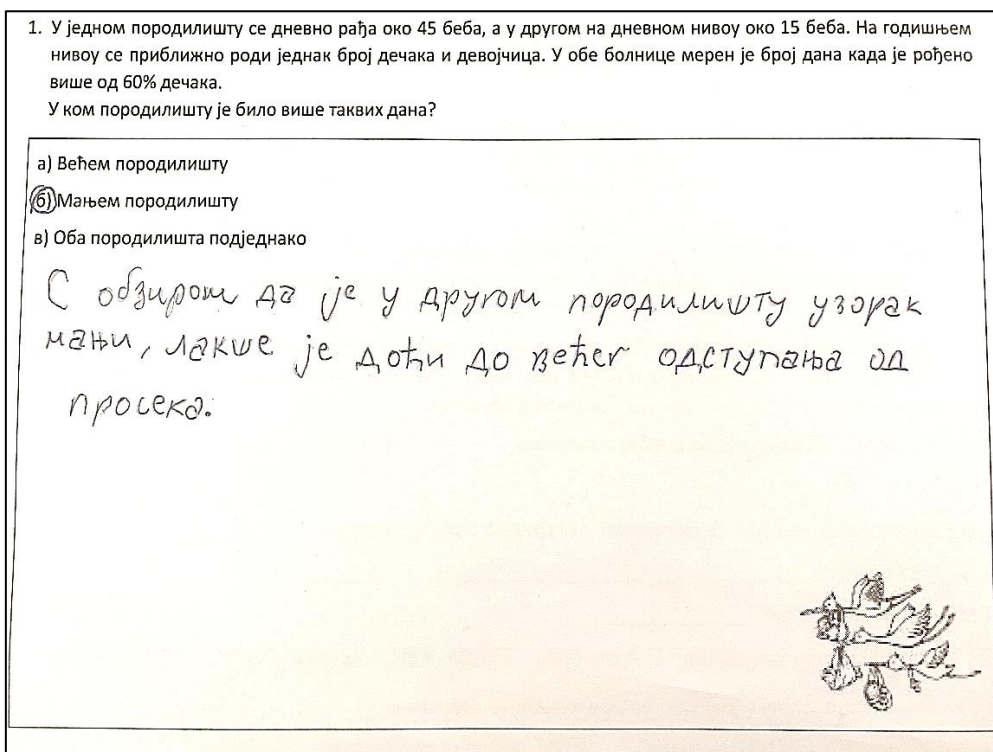 1. У једном породилишту се дневно рађа око 45 беба, а у другом на дневном нивоу око 15 беба. На годишњем
нивоу се приближно роди једнак број дечака и девојчица. У обе болнице мерен је број дана када је рођено
више од 60% дечака.
У ком породилишту је било више таквих дана?
а) Већем породилишту
б) Мањем породилишту
в) Оба породилишта подједнако
С обзиром да је у другом породилишту узорак
мањи, лакше је доћи до већег одступања од
просека.